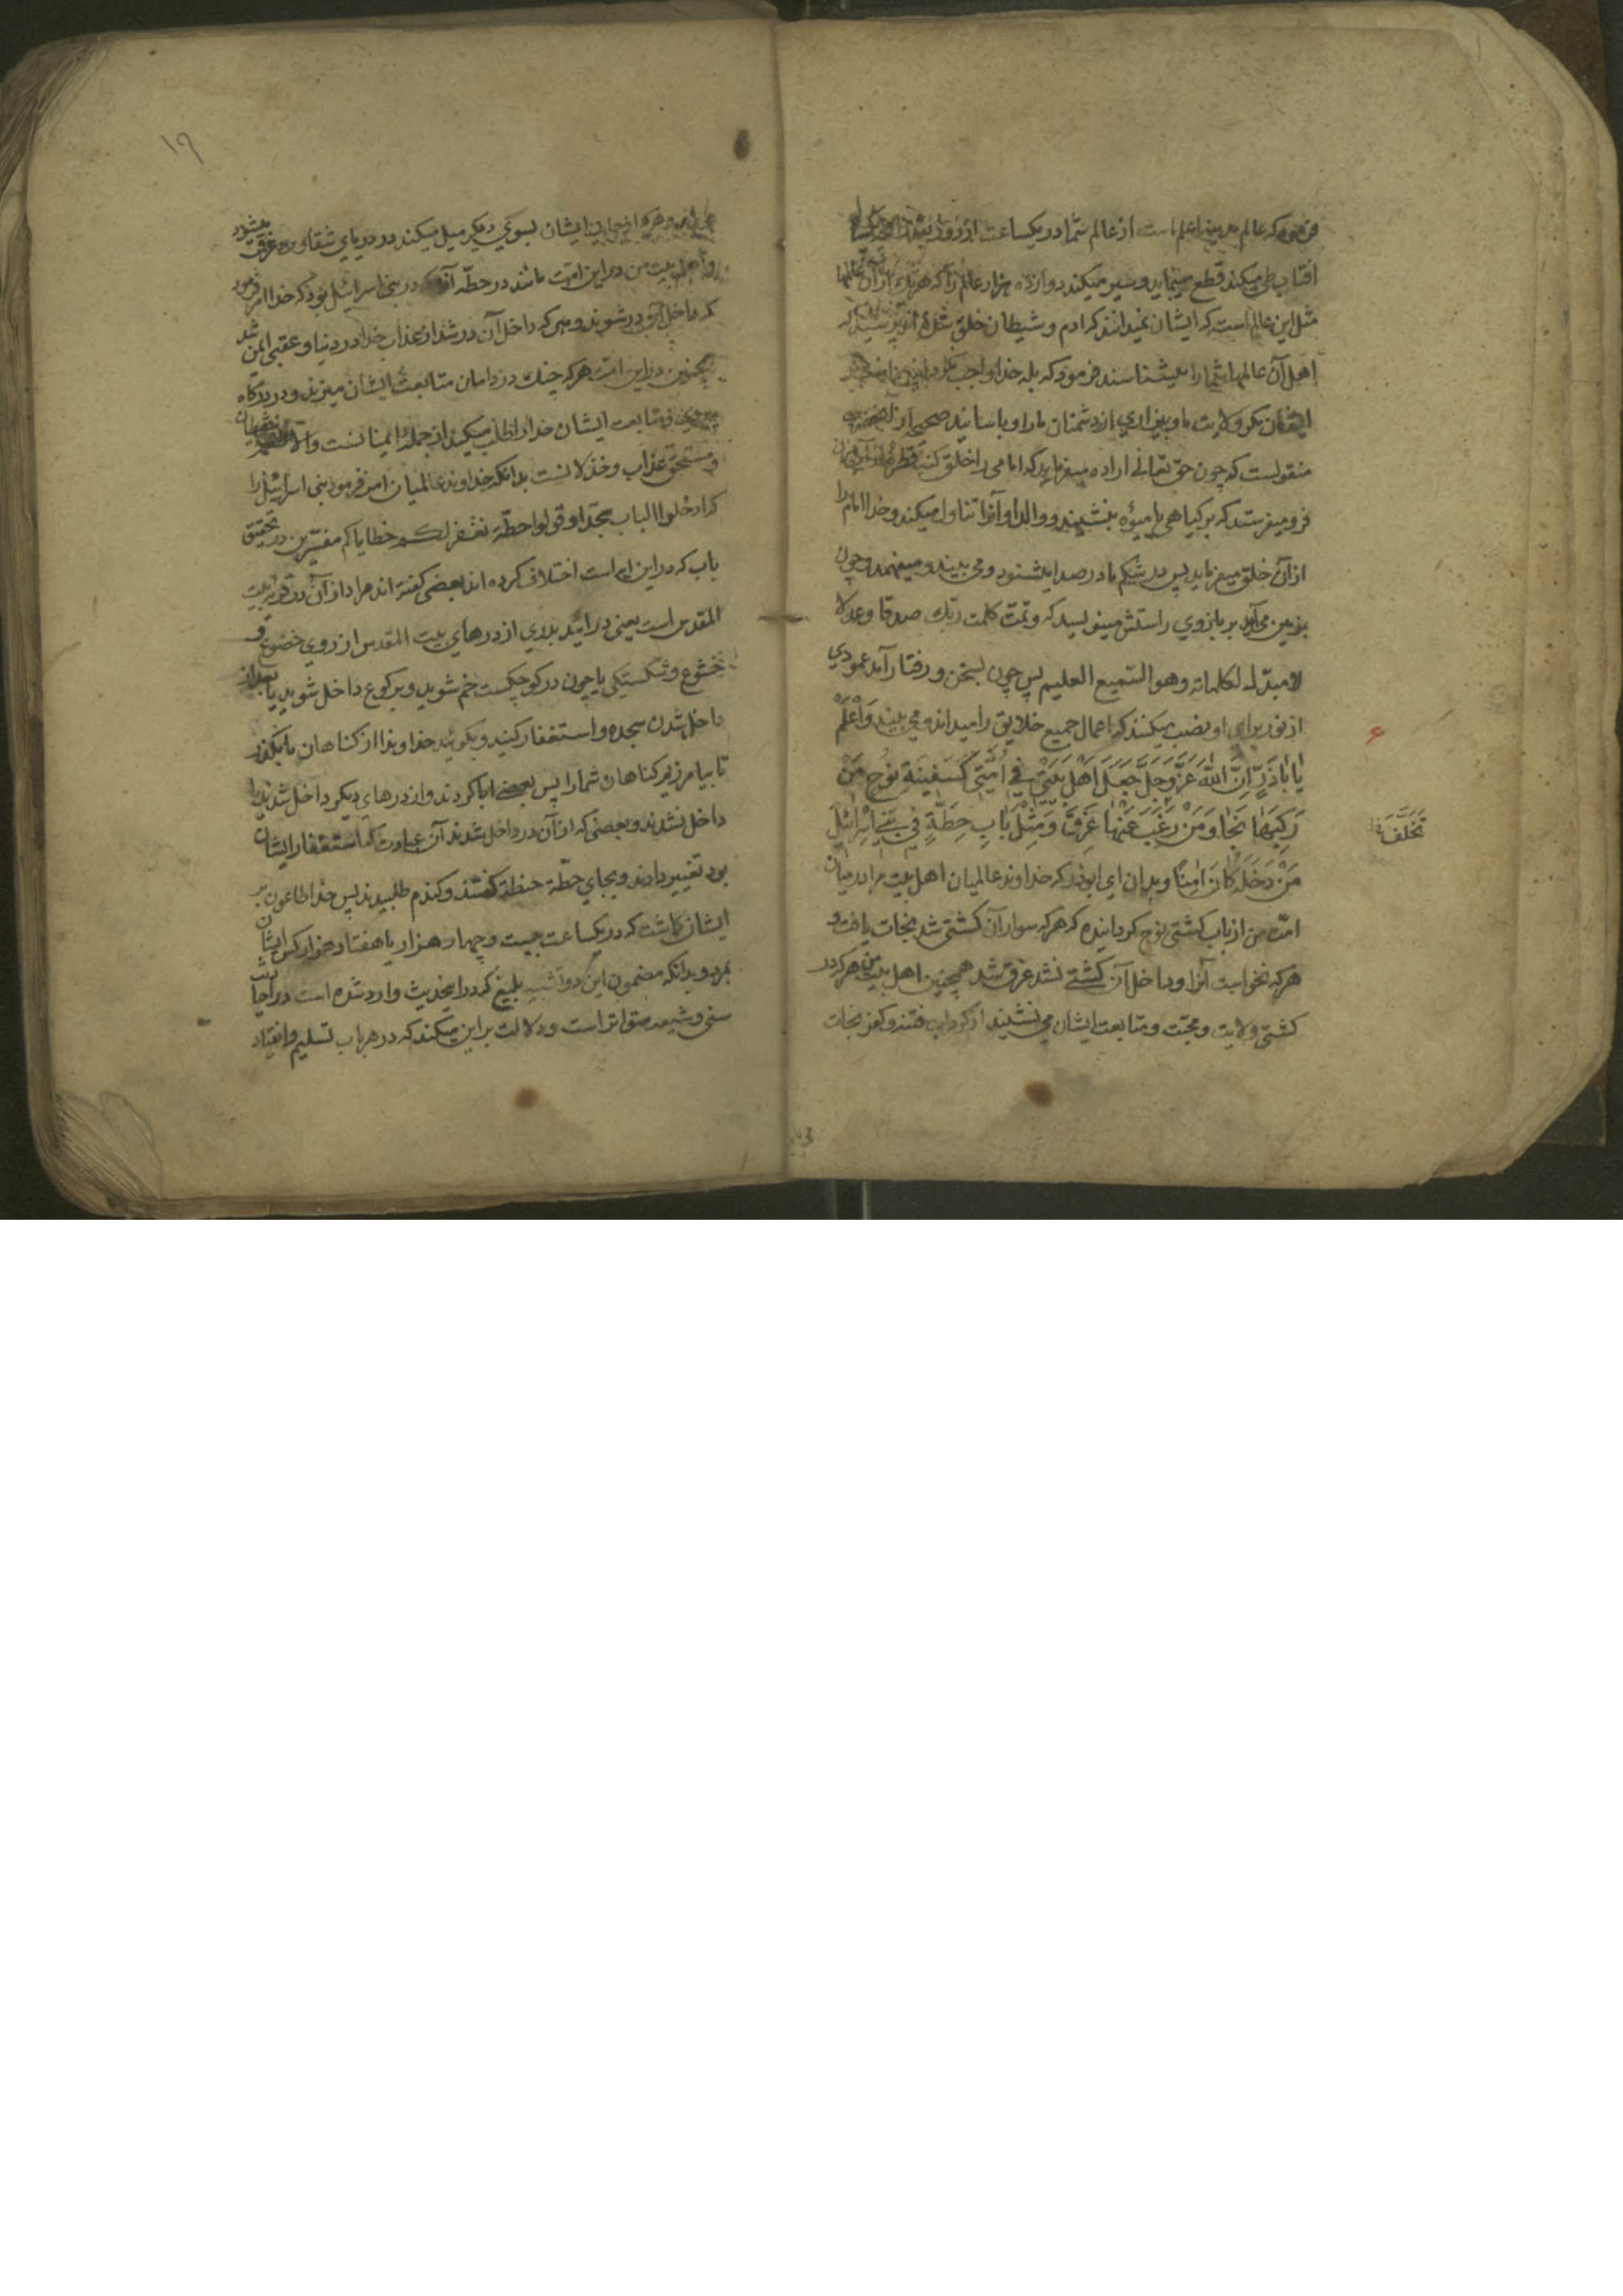 فرمود که عالم مدینه اعلم است از عالم شما در یکساعت از روز
افتاب طی میکند قطع مینماید و سیر میکند دوازده هزار عالم را که هر یک از آن عالمها
مثل این عالم است که ایشان نمیدانند که ادم و شیطان خلق شده اند پرسید که
اهل آن عالمها شما را میشناسند فرمود که بله خدا واجب نکردانیده
ایشان مکر ولایت ما و بیزاری از دشمنان ما را و باسانید صحیح از آنحضرت
منقولست که چون حق تعالی اراده میفرماید که امامی را خلق کند قطره
فرو میفرستد که بر کیاهی یا میوه بنشیند و والد او آنرا تناول میکند و خدا امام را
از آن خلق میفرماید پس در شکم مادر صدا میشنود و می بیند و میفهمد و چون
بزمین می آید بر بازوی راستش مینویسد که و تمت کلمت ربک صدقا و عدلا
لا مبدل لکلماته و هو السمیع العلیم پس چون بسخن و رفتار آمد عمودی
از نور برای او نصب میکنند که اعمال جمیع خلایق را میداند و می بیند وَاعْلَمْ
۶
یا اباذَرٍّ اِنَّ اللهَ عَزَّ وَجَلَّ جَعَلَ اَهْلَ بَیْتی فی اُمَّتی کَسَفینَةِ نوُحٍ مَنْ
رَکِبَها نَجا وَمَنْ رَغِبَ عَنْها غَرِقَ وَمِثْلَ بابِ حِطَّةٍ فی بَنی اِسْرائیلَ
تَخَلَّفَ
مَنْ دَخَلَهُ کانَ آمِنًا و بدان ای ابوذر که خداوند عالمیان اهل بیت مرا در میان
امّت من از باب کشتی نوح کردانیده که هر که سوار آن کشتی شد نجات یافت و
هر که نخواست آنرا و داخل آن کشتی نشد غرق شد همچنین اهل بیت من هر که در
کشتی ولایت و محبّت و متابعت ایشان می نشیند از کرداب فتنه و کفر نجات
۱۹
ایشان بسوی دیکر میل میکند در دریای شقاوت غرق میشود
و اهل بیت من در این امّت مانند در حطّه اند که در بنی اسرائیل بود که خدا امر فرمود
که داخل آن در شوند و هر که داخل آن در شد از عذاب خدا در دنیا و عقبی ایمن شد
همچنین در این امّت هر که چنک در دامان متابعت ایشان میزند و در درکاه
پیروی و متابعت ایشان خدا را طلب میکند از جمله ایمنانست و الا
و مستحق عذاب و خذلانست بدانکه خداوند عالمیان امر فرمود بنی اسرائیل را
که ادخلوا الباب سجّدا و قولوا حطّة نغفر لکم خطایاکم مفسّرین در تحقیق
باب که در این ایه است اختلاف کرده اند بعضی کفته اند مراد از آن در قریه بیت
المقدس است یعنی درائید بدری از درهای بیت المقدس از روی خضوع و
خشوع و شکستکی یا چون در کوچکست خم شوید و برکوع داخل شوید یا بعد از
داخل شدن سجده و استغفار کنید و بکوئید خداوندا از کناهان ما بکذر
تا بیامرزیم کناهان شما را پس بعضی ابا کردند و از درهای دیکر داخل شدند یا
داخل نشدند و بعضی که از آن در داخل شدند آن عبارت که استغفار ایشان
بود تغییر دادند و بجای حطّة حنطة کفتند و کندم طلبیدند پس خدا طاعون بر
ایشان کاشت که در یکساعت بیست و چهار هزار یا هفتاد هزار کس ایشان
بمرد و بدانکه مضمون این دو تشبیه بلیغ که در اینحدیث وارد شده است در احادیث
سنی و شیعه متواتر است و دلالت بر این میکند که در هر باب تسلیم و انقیاد